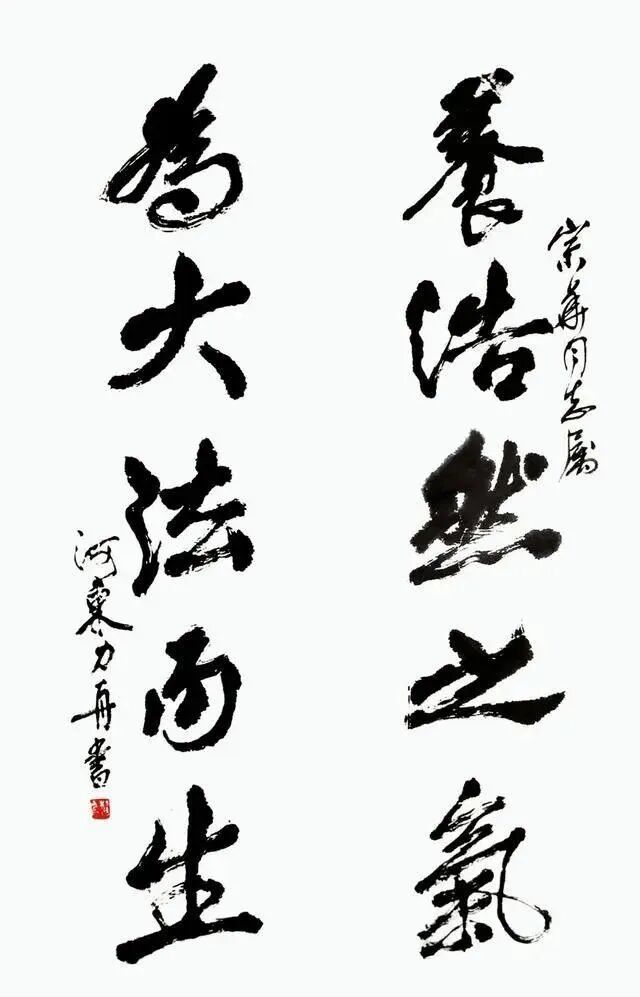 宗華同志属
養浩然之氣
為大法而生
河東力舟書